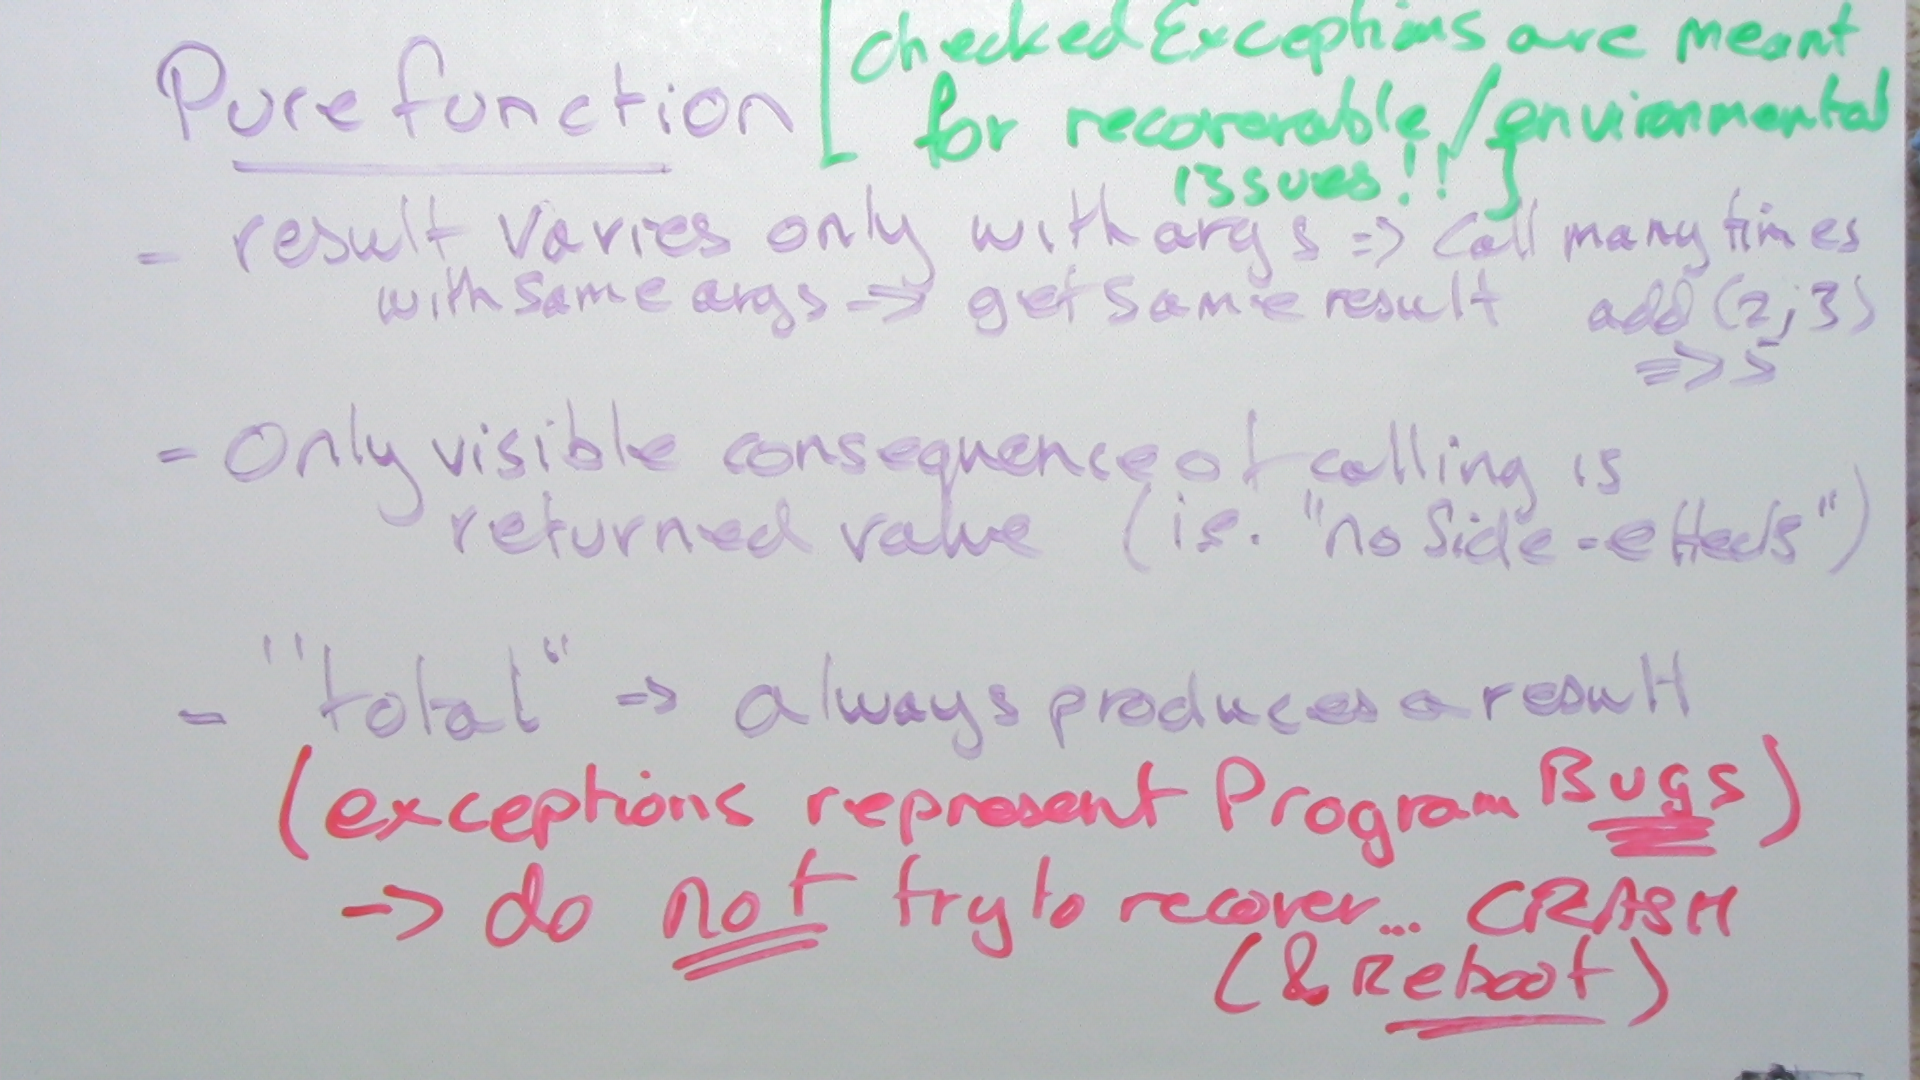 Pure function
[checked Exceptions are meant
for recoverable/environmental
issues!!]
- result varies only with args => call many times
with same args -> get same result add(2,3)
=> 5
- Only visible consequence of calling is
returned value (ie. "no side-effects")
- "total" -> always produces a result
(exceptions represent Program Bugs)
-> do not try to recover... CRASH
(& Reboot)